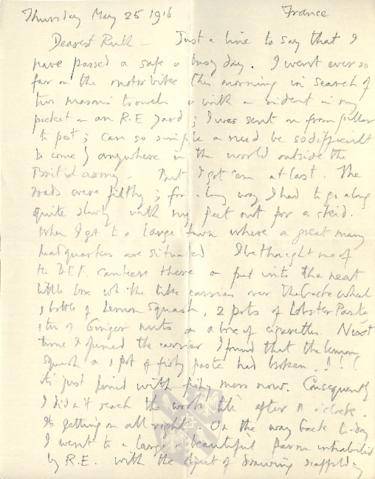 Thursday May 25 1916 France
Dearest Ruth – Just a line to say that I
have passed a safe & busy day. I went ever so
far on the motor bike this morning in search of
two masons trowels & with a indent in my
pocket on an R.E. yard; I was sent on from pillar
to post; can so simple a need be so difficult
to come by anywhere in the world outside the
British army. But I got 'em at last. The
roads were filthy; & for a long way I had to go along
quite slowly with my feet out for a skid.
When I got to a large town where a great many
headquarters are situated I bethought me of
the B.E.F. canteen there & put into the neat
little box on the bike carrier over the back wheel
a bottle of Lemon Squash, 2 pots of Lobster Paste
a tin of Ginger nuts & a box of cigarettes. Next
time I opened the carrier I found that the lemon
squash & a pot of fishy paste had broken!!!
It's just lined with fishy mess now. Consequently
I didn't reach the work till after 11 o'clock.
It's getting on all right. On the way back to-day
I went to a large & beautiful farm inhabited
by R.E. with the object of drawing scaffolding